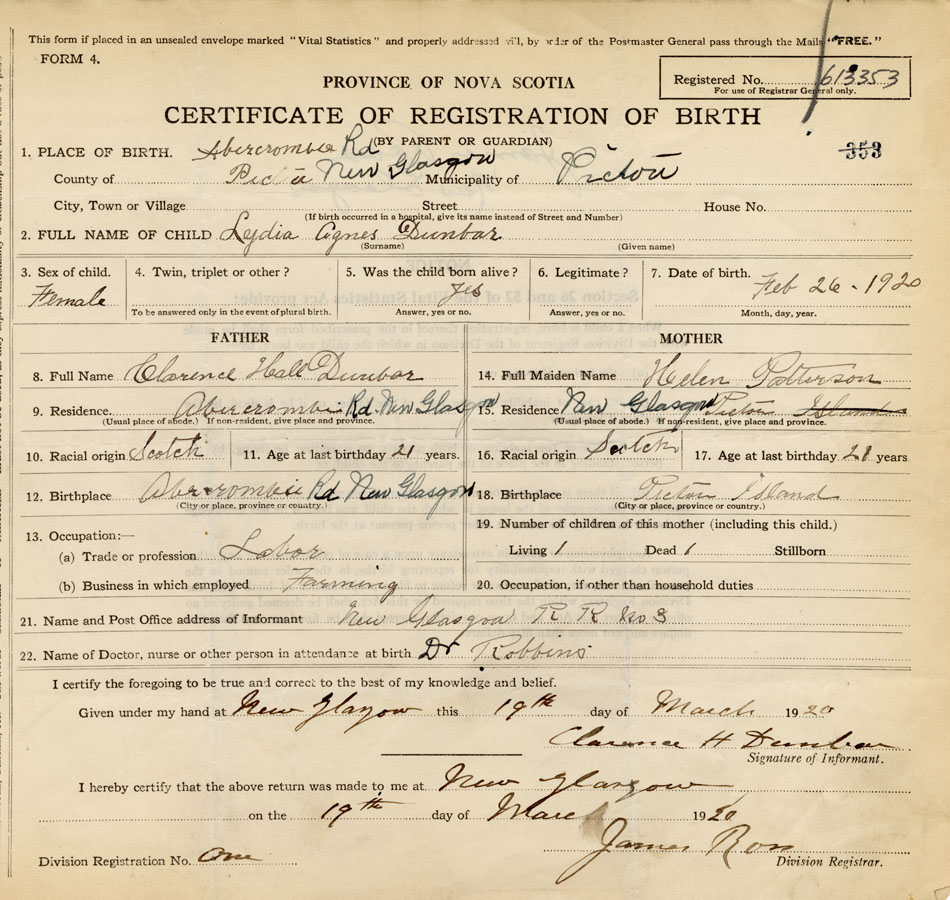 This form if placed in an unsealed envelope marked "Vital Statistics" and properly addressed will, by order of the Postmaster General pass through the Mails "FREE."
FORM 4.
Registered No. 613353
For use of Registrar General only.
PROVINCE OF NOVA SCOTIA
CERTIFICATE OF REGISTRATION OF BIRTH
(BY PARENT OR GUARDIAN)
353
1. PLACE OF BIRTH. Abercrombie Rd
County of Pictou New Glasgow Municipality of Pictou
City, Town or Village Street House No.
(If birth occurred in a hospital, give its name instead of Street and Number)
2. FULL NAME OF CHILD Lydia Agnes Dunbar
(Surname) (Given name)
3. Sex of child. 4. Twin, triplet or other? 5. Was the child born alive? 6. Legitimate? 7. Date of birth. Feb 26 - 1920
Female yes
To be answered only in the event of plural birth. Answer, yes or no. Answer, yes or no. Month, day, year.
FATHER MOTHER
8. Full Name Clarence Hall Dunbar 14. Full Maiden Name Helen Patterson
9. Residence. Abercrombie Rd. New Glasgow 15. Residence New Glasgow Pictou Island
(Usual place of abode.) If non-resident, give place and province. (Usual place of abode.) If non-resident, give place and province.
10. Racial origin Scotch 11. Age at last birthday 21 years. 16. Racial origin Scotch 17. Age at last birthday 21 years
12. Birthplace Abercrombie Rd New Glasgow 18. Birthplace Pictou Island
(City or place, province or country.) (City or place, province or country.)
13. Occupation:— 19. Number of children of this mother (including this child.)
(a) Trade or profession Labor Living 1 Dead 1 Stillborn
(b) Business in which employed Farming 20. Occupation, if other than household duties
21. Name and Post Office address of Informant New Glasgow R R No 3
22. Name of Doctor, nurse or other person in attendance at birth Dr Robbins
I certify the foregoing to be true and correct to the best of my knowledge and belief.
Given under my hand at New Glasgow this 19th day of March 1920
Clarence H Dunbar
Signature of Informant.
I hereby certify that the above return was made to me at New Glasgow
on the 19th day of March 1920
James Ross
Division Registration No. One Division Registrar.